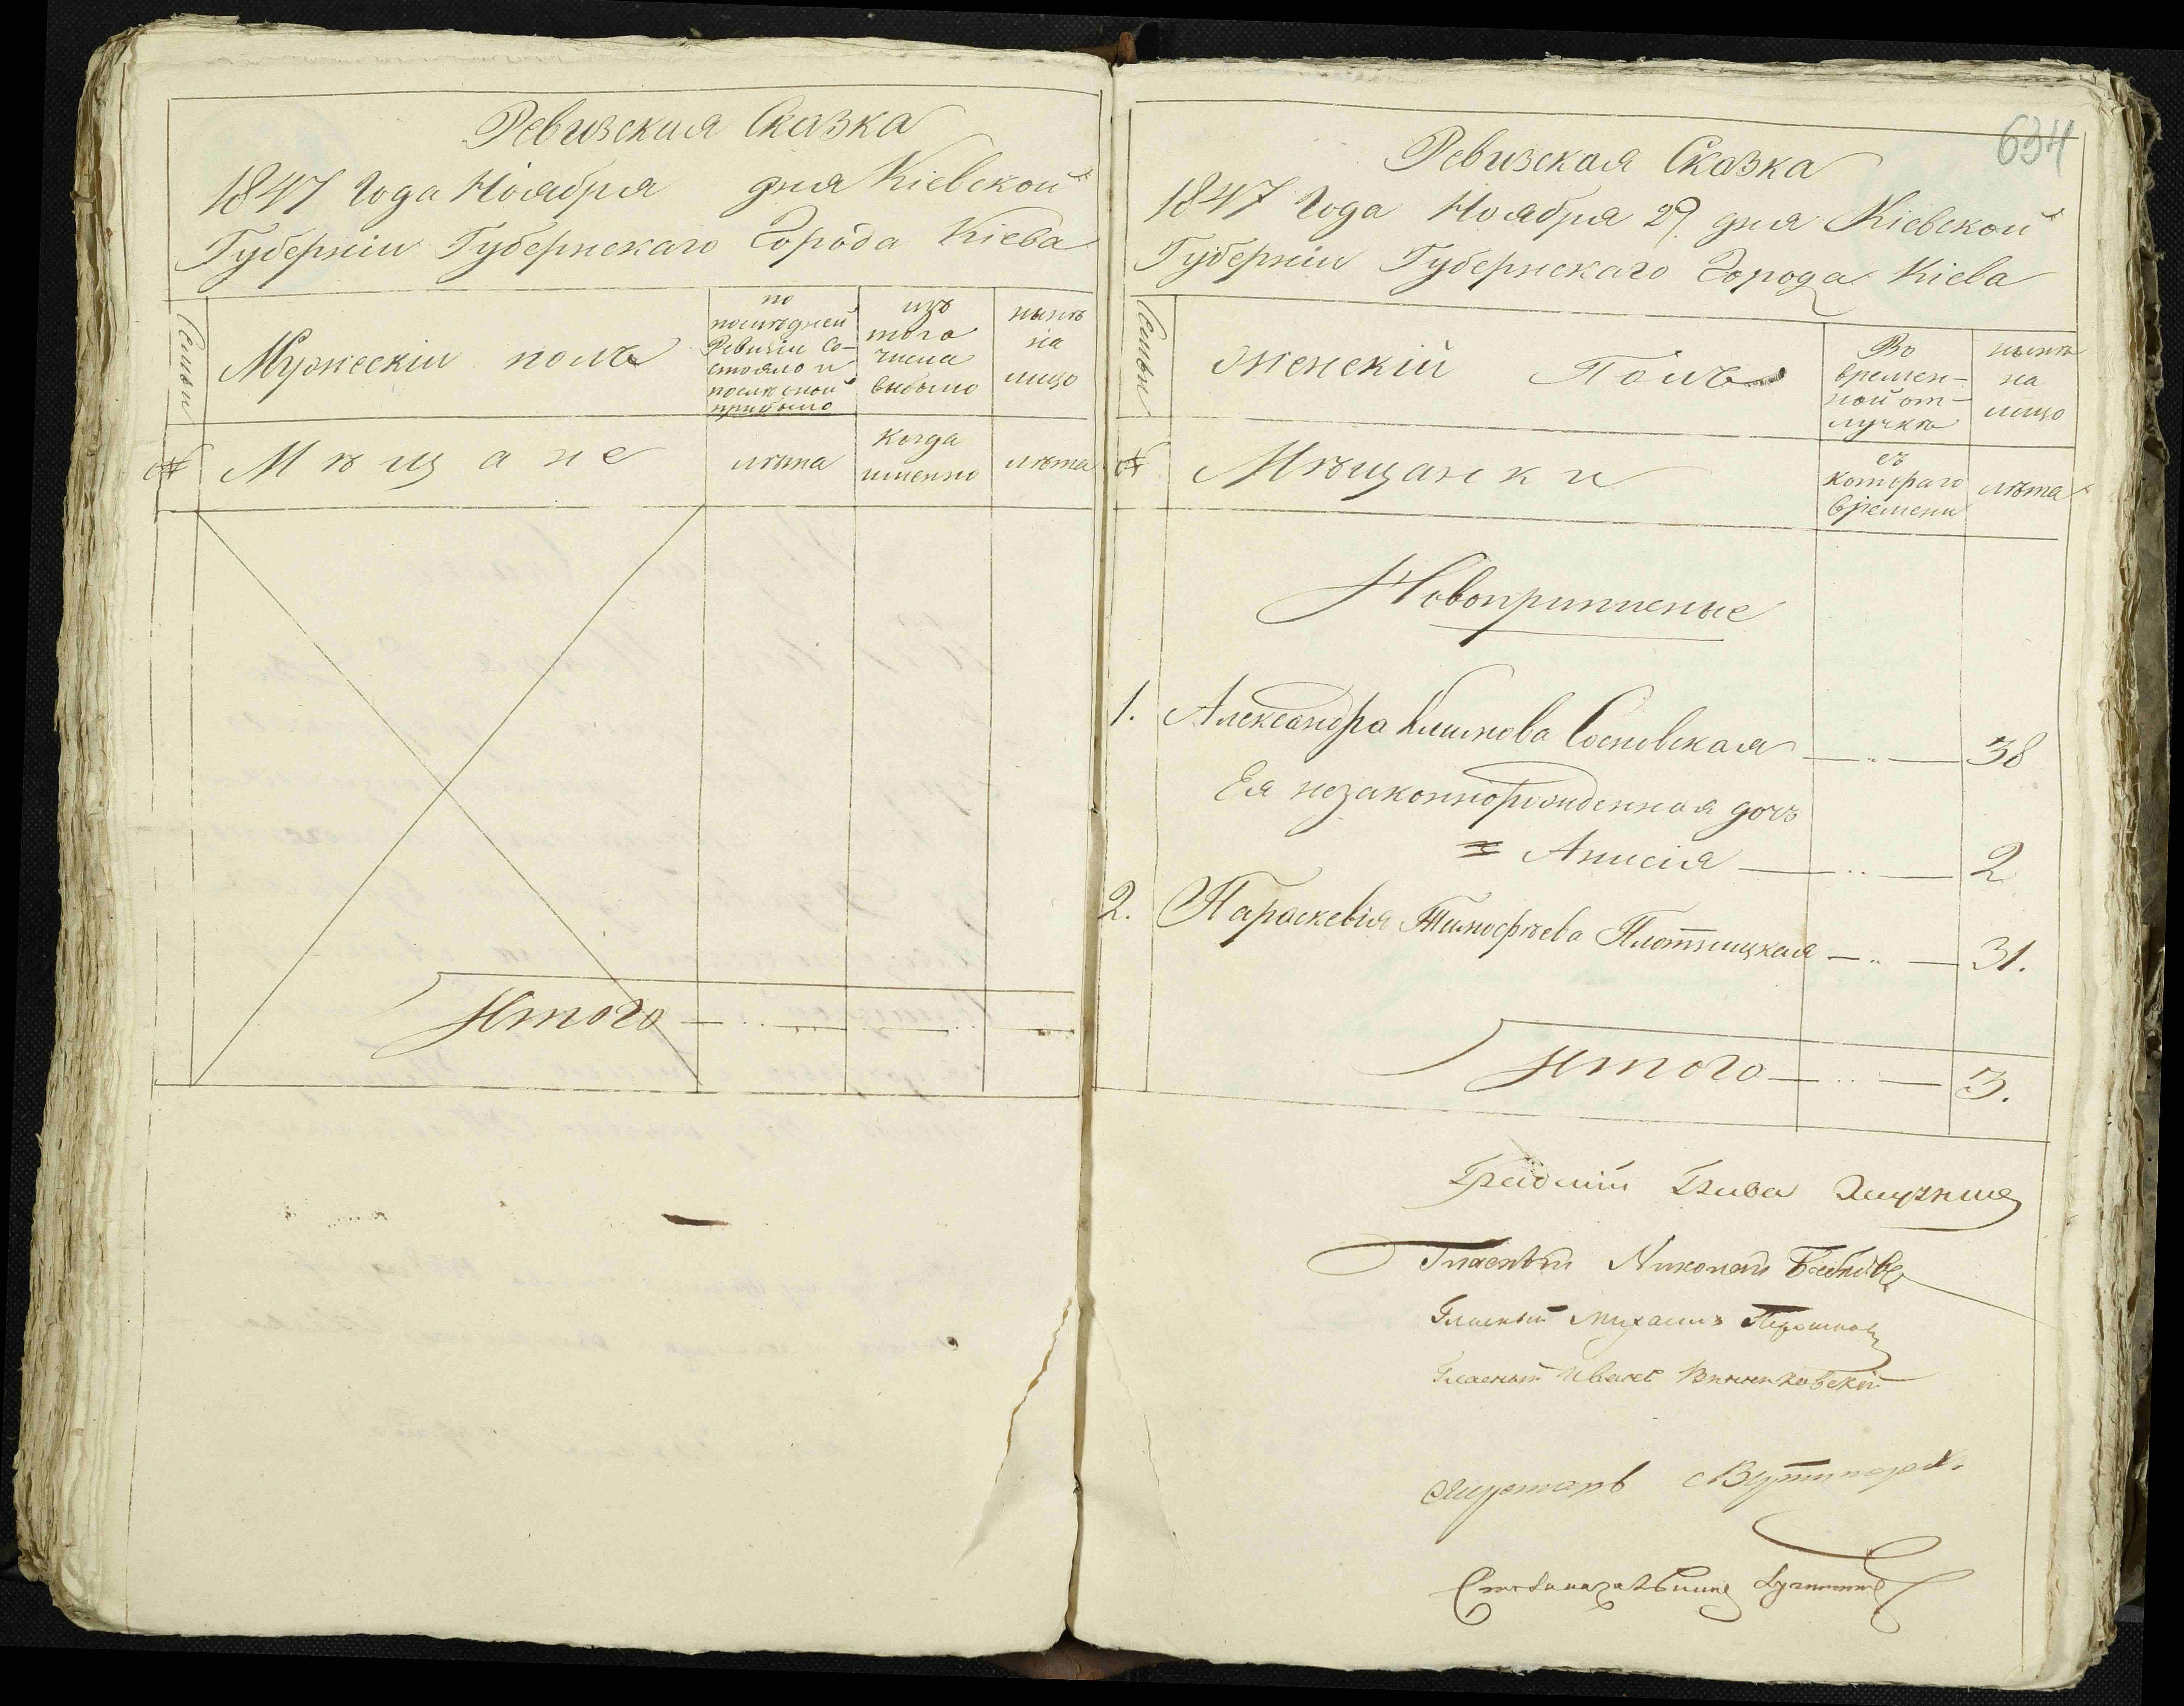 Ревизская Сказка
1847 Года Ноября дня Кіевской
Губерніи Губернскаго Города Кіева
Семьи
Мужескій полъ
по
последней
Ревизіи Со-
стояло и
после оной
прибыло
изъ
того
числа
выбыло
нынѣ
на
лицо
№
Мѣщане
лѣта
когда
именно
лѣта
Итого
634
Ревизская Сказка
1847 Года Ноября 29 дня Кіевской
Губерніи Губернскаго Города Кіева
Семьи
Женскій Полъ
Во
времен-
ной от-
лучкѣ
нынѣ
на
лицо
№
Мѣщанки
съ
котораго
времени
лѣта
Новоприписные
1. Александра Климова Сосновская — „ — 38
Ея незаконнорожденная дочь
Анисія — „ — 2
2. Параскевія Тимофѣева Плотницкая — „ — 31.
Итого — „ — 3.
Градскій Глава
Гласный Николай
Гласный Михаилъ
Гласный Иванъ